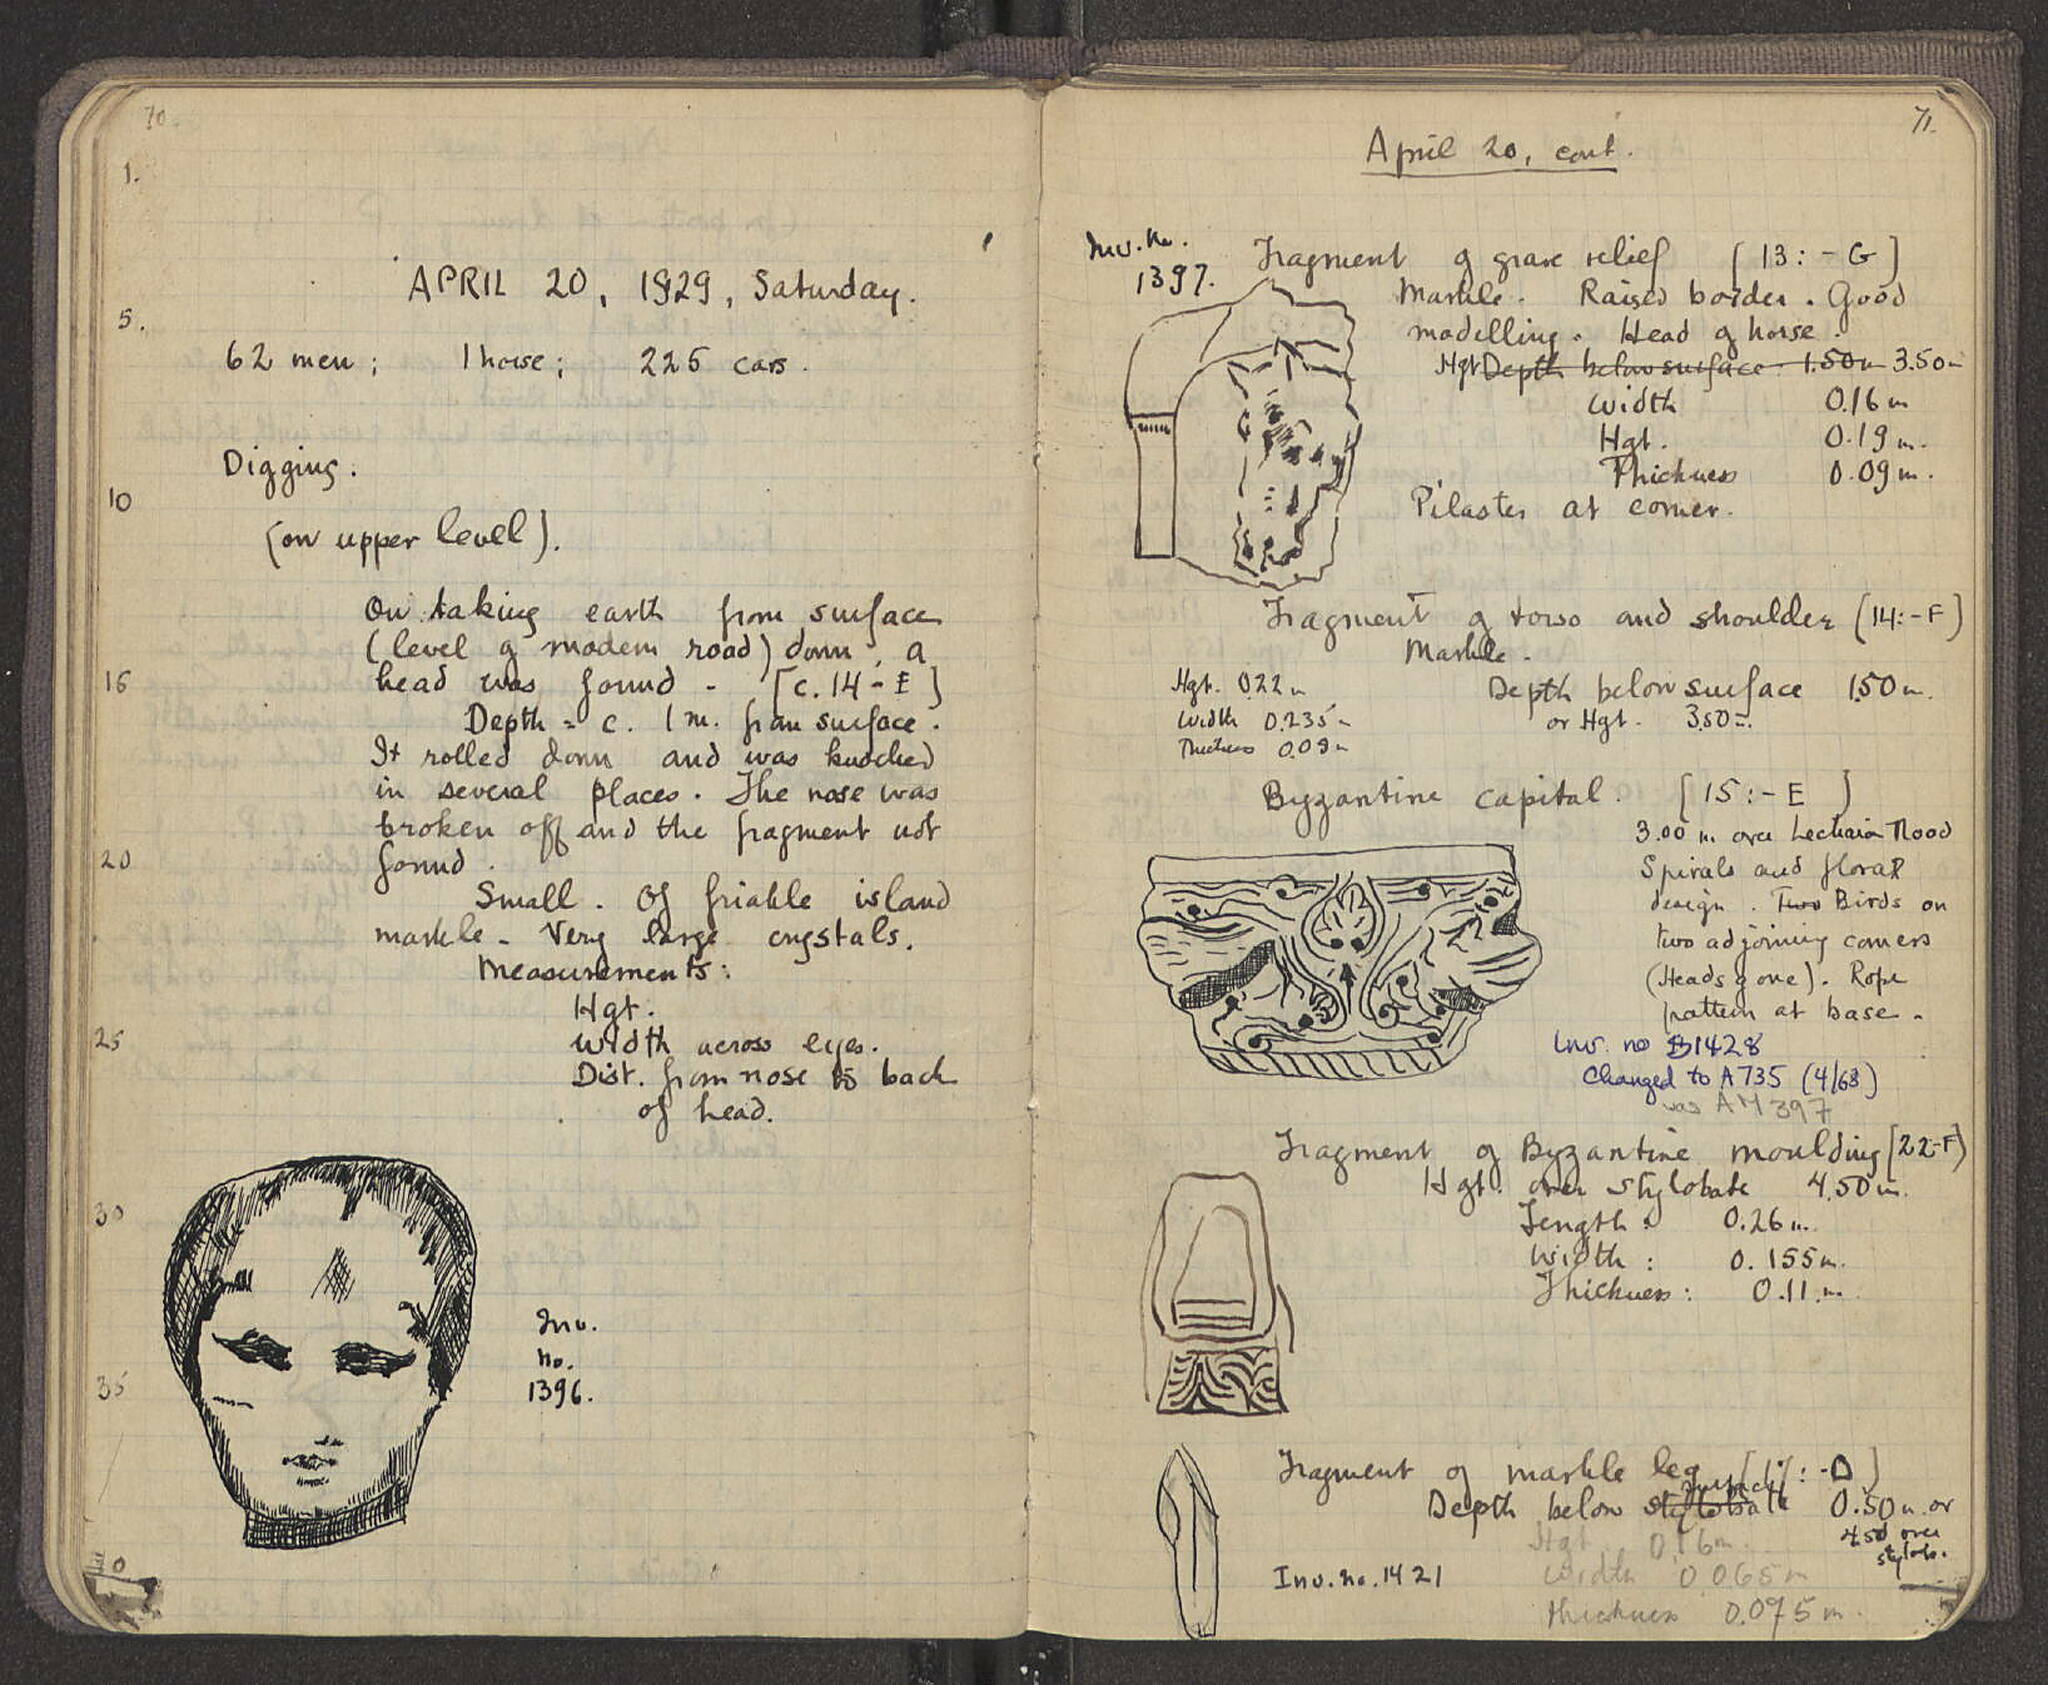 70.
1.
APRIL 20, 1929, Saturday.
5.
62 men; 1 horse; 225 cars.
Digging.
10
(on upper level).
On taking earth from surface
(level of modern road) down, a
15
head was found - [c. 14 - E]
Depth = c. 1 m. from surface.
It rolled down and was knocked
in several places. The nose was
broken off and the fragment not
20
found.
Small. Of friable island
marble - Very large crystals.
Measurements:
Hgt.
25
Width across eyes.
Dist. from nose to back
of head.
30
Inv.
no.
35
1396.
40
71.
April 20, cont.
Inv. No.
1397.
Fragment of grave relief [13: - G]
Marble. Raised border. Good
modelling. Head of horse.
Hgt Depth below surface 1.50m 3.50m
Width 0.16 m
Hgt. 0.19 m.
Thickness 0.09 m.
Pilaster at corner.
Fragment of torso and shoulder [14: - F]
Marble.
Hgt. 0.22 m
Width 0.235 m
Thickness 0.09 m
Depth below surface 1.50 m.
or Hgt. 3.50 m.
Byzantine capital. [15: - E]
3.00 m over Lechaion Road
Spirals and floral
design. Two Birds on
two adjoining corners
(Heads gone). Rope
pattern at base -
Inv. no B1428
Changed to A735 (4/68)
was AM 397
Fragment of Byzantine moulding [22-F]
Hgt. over stylobate 4.50 m.
Length: 0.26 m.
Width: 0.155 m.
Thickness: 0.11 m.
Fragment of marble leg : - D]
surface
Depth below stylobate 0.50 m or
4.50 over
stylob.
Hgt. 0.16 m.
Inv. no. 1421
Width 0.065 m
Thickness 0.075 m.